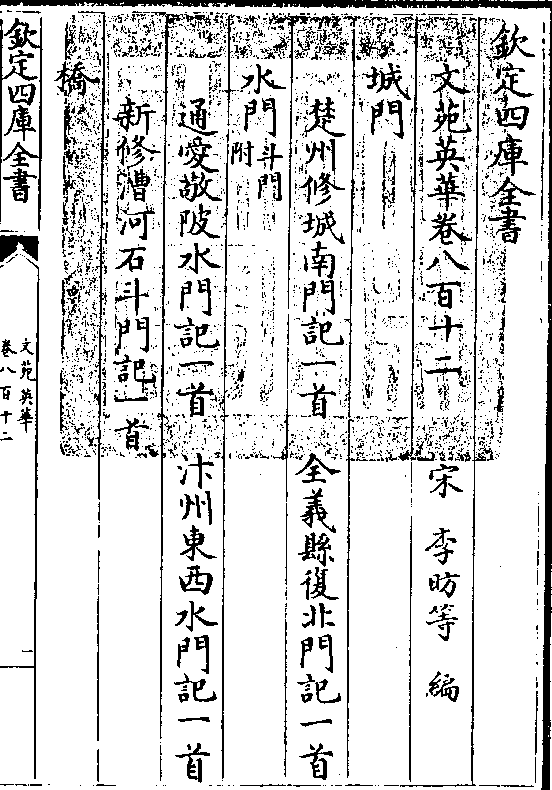 欽定四庫全書
文苑英華卷八百十二
宋 李昉等 編
城門
楚州修城南門記一首 全義縣復北門記一首
水門斗門附
通愛敬陂水門記一首 汴州東西水門記一首
新修漕河石斗門記一首
橋
欽定四庫全書
文苑英華
卷八百十二
一